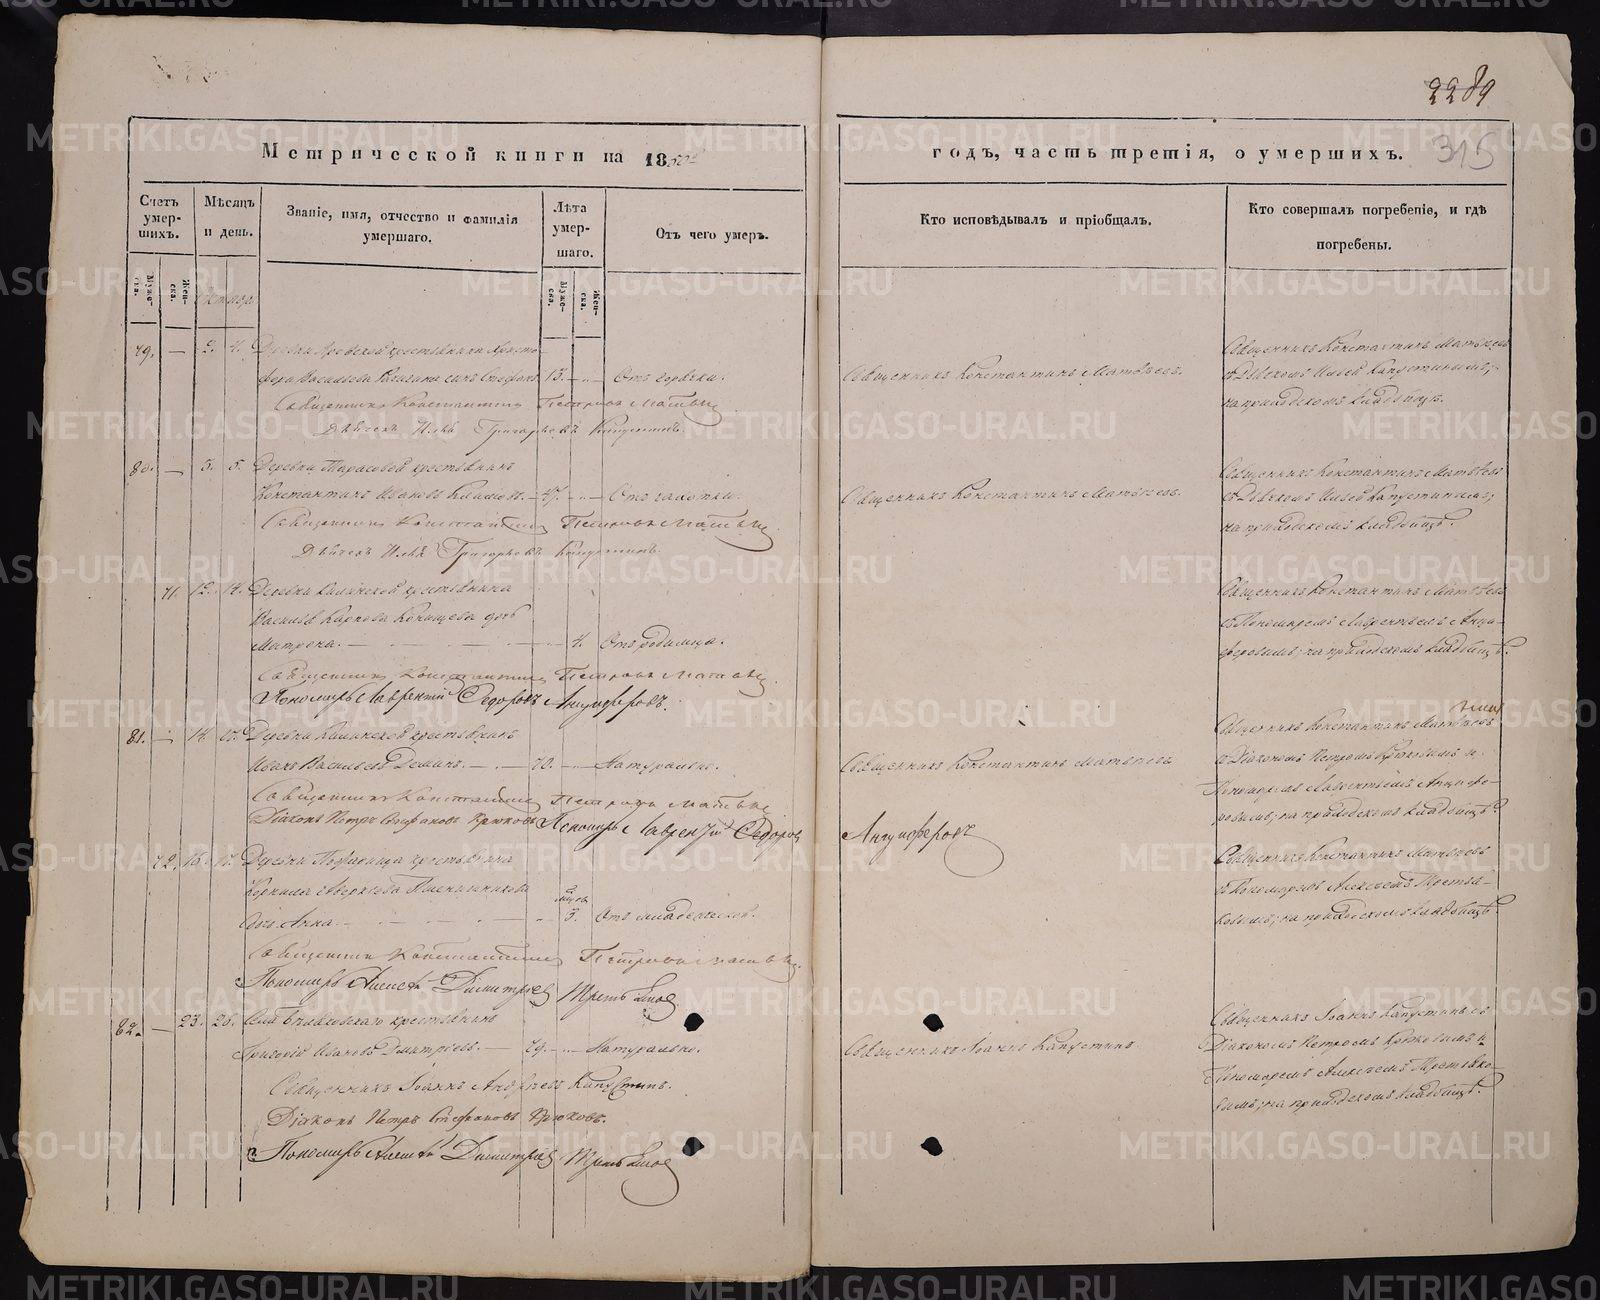 2289
315
Метрической книги на 18
годъ, часть третія, о умершихъ.
Счетъ умер-шихъ.
Мѣсяцъ и день.
Званіе, имя, отчество и фамилія умершаго.
Лѣта умер-шаго.
Отъ чего умеръ.
Кто исповѣдывалъ и пріобщалъ.
Кто совершалъ погребеніе, и гдѣ погребены.
Муже-ска.
Жен-ска.
Муже-ска.
Жен-ска.
79. — 2. 4. Деревни крестьянина Христо-
фора Васильева сынъ Стефанъ 13. Отъ горячки. Священникъ Константинъ Матвѣевъ.
Священникъ Константинъ Матвѣевъ
съ Дьячкомъ Ильей Капустинымъ,
на приходскомъ кладбищѣ.
Священникъ Константинъ Петровъ Матвѣевъ
Дьячекъ Илья Григорьевъ Капустинъ.
80. — 5. Деревни Тарасовой крестьянинъ
Константинъ Ивановъ 47. Отъ чахотки. Священникъ Константинъ Матвѣевъ.
Священникъ Константинъ Матвѣевъ
съ Дьячкомъ Ильей Капустинымъ,
на приходскомъ кладбищѣ.
Священникъ Константинъ Петровъ Матвѣевъ
Дьячекъ Илья Григорьевъ Капустинъ.
71. 12. 14. Деревни крестьянина
Василья Карпова дочь
Матрона. 4. Отъ родимца.
Священникъ Константинъ Матвѣевъ
съ Пономаремъ Лаврентьемъ Анци-
феровымъ; на приходскомъ кладбищѣ.
Священникъ Константинъ Петровъ Матвѣевъ.
Пономарь Лаврентій Федоровъ Анцыферовъ.
81. — 14. 17. Деревни крестьянинъ
Иванъ Васильевъ 70. Натурально. Священникъ Константинъ Матвѣевъ
Священникъ Константинъ Матвѣевъ
съ Діакономъ Петромъ Крюковымъ и
Пономаремъ Лаврентьемъ Анцыфе-
ровымъ; на приходскомъ кладбищѣ.
Священникъ Константинъ Петровъ Матвѣевъ
Діаконъ Петръ Стефановъ Крюковъ Пономарь Лаврентій Федоровъ Анцыферовъ
72. Деревни крестьянина
Корнила Аверкіева
дочь Анна 3. Отъ младенческой.
Священникъ Константинъ Матвѣевъ
съ Пономаремъ Алексѣемъ Третья-
ковымъ; на приходскомъ кладбищѣ.
Священникъ Константинъ Петровъ Матвѣевъ.
Пономарь Алексѣй Димитріевъ Третьяковъ
82. — 23. 26. Села крестьянинъ
Григорій Ивановъ Дмитріевъ. 79. Натурально. Священникъ Іоаннъ Капустинъ.
Священникъ Іоаннъ Капустинъ съ
Діакономъ Петромъ Крюковымъ и
Пономаремъ Алексѣемъ Третьяко-
вымъ; на приходскомъ кладбищѣ.
Священникъ Іоаннъ Андреевъ Капустинъ.
Діаконъ Петръ Стефановъ Крюковъ.
Пономарь Алексѣй Димитріевъ Третьяковъ
METRIKI.GASO-URAL.RU